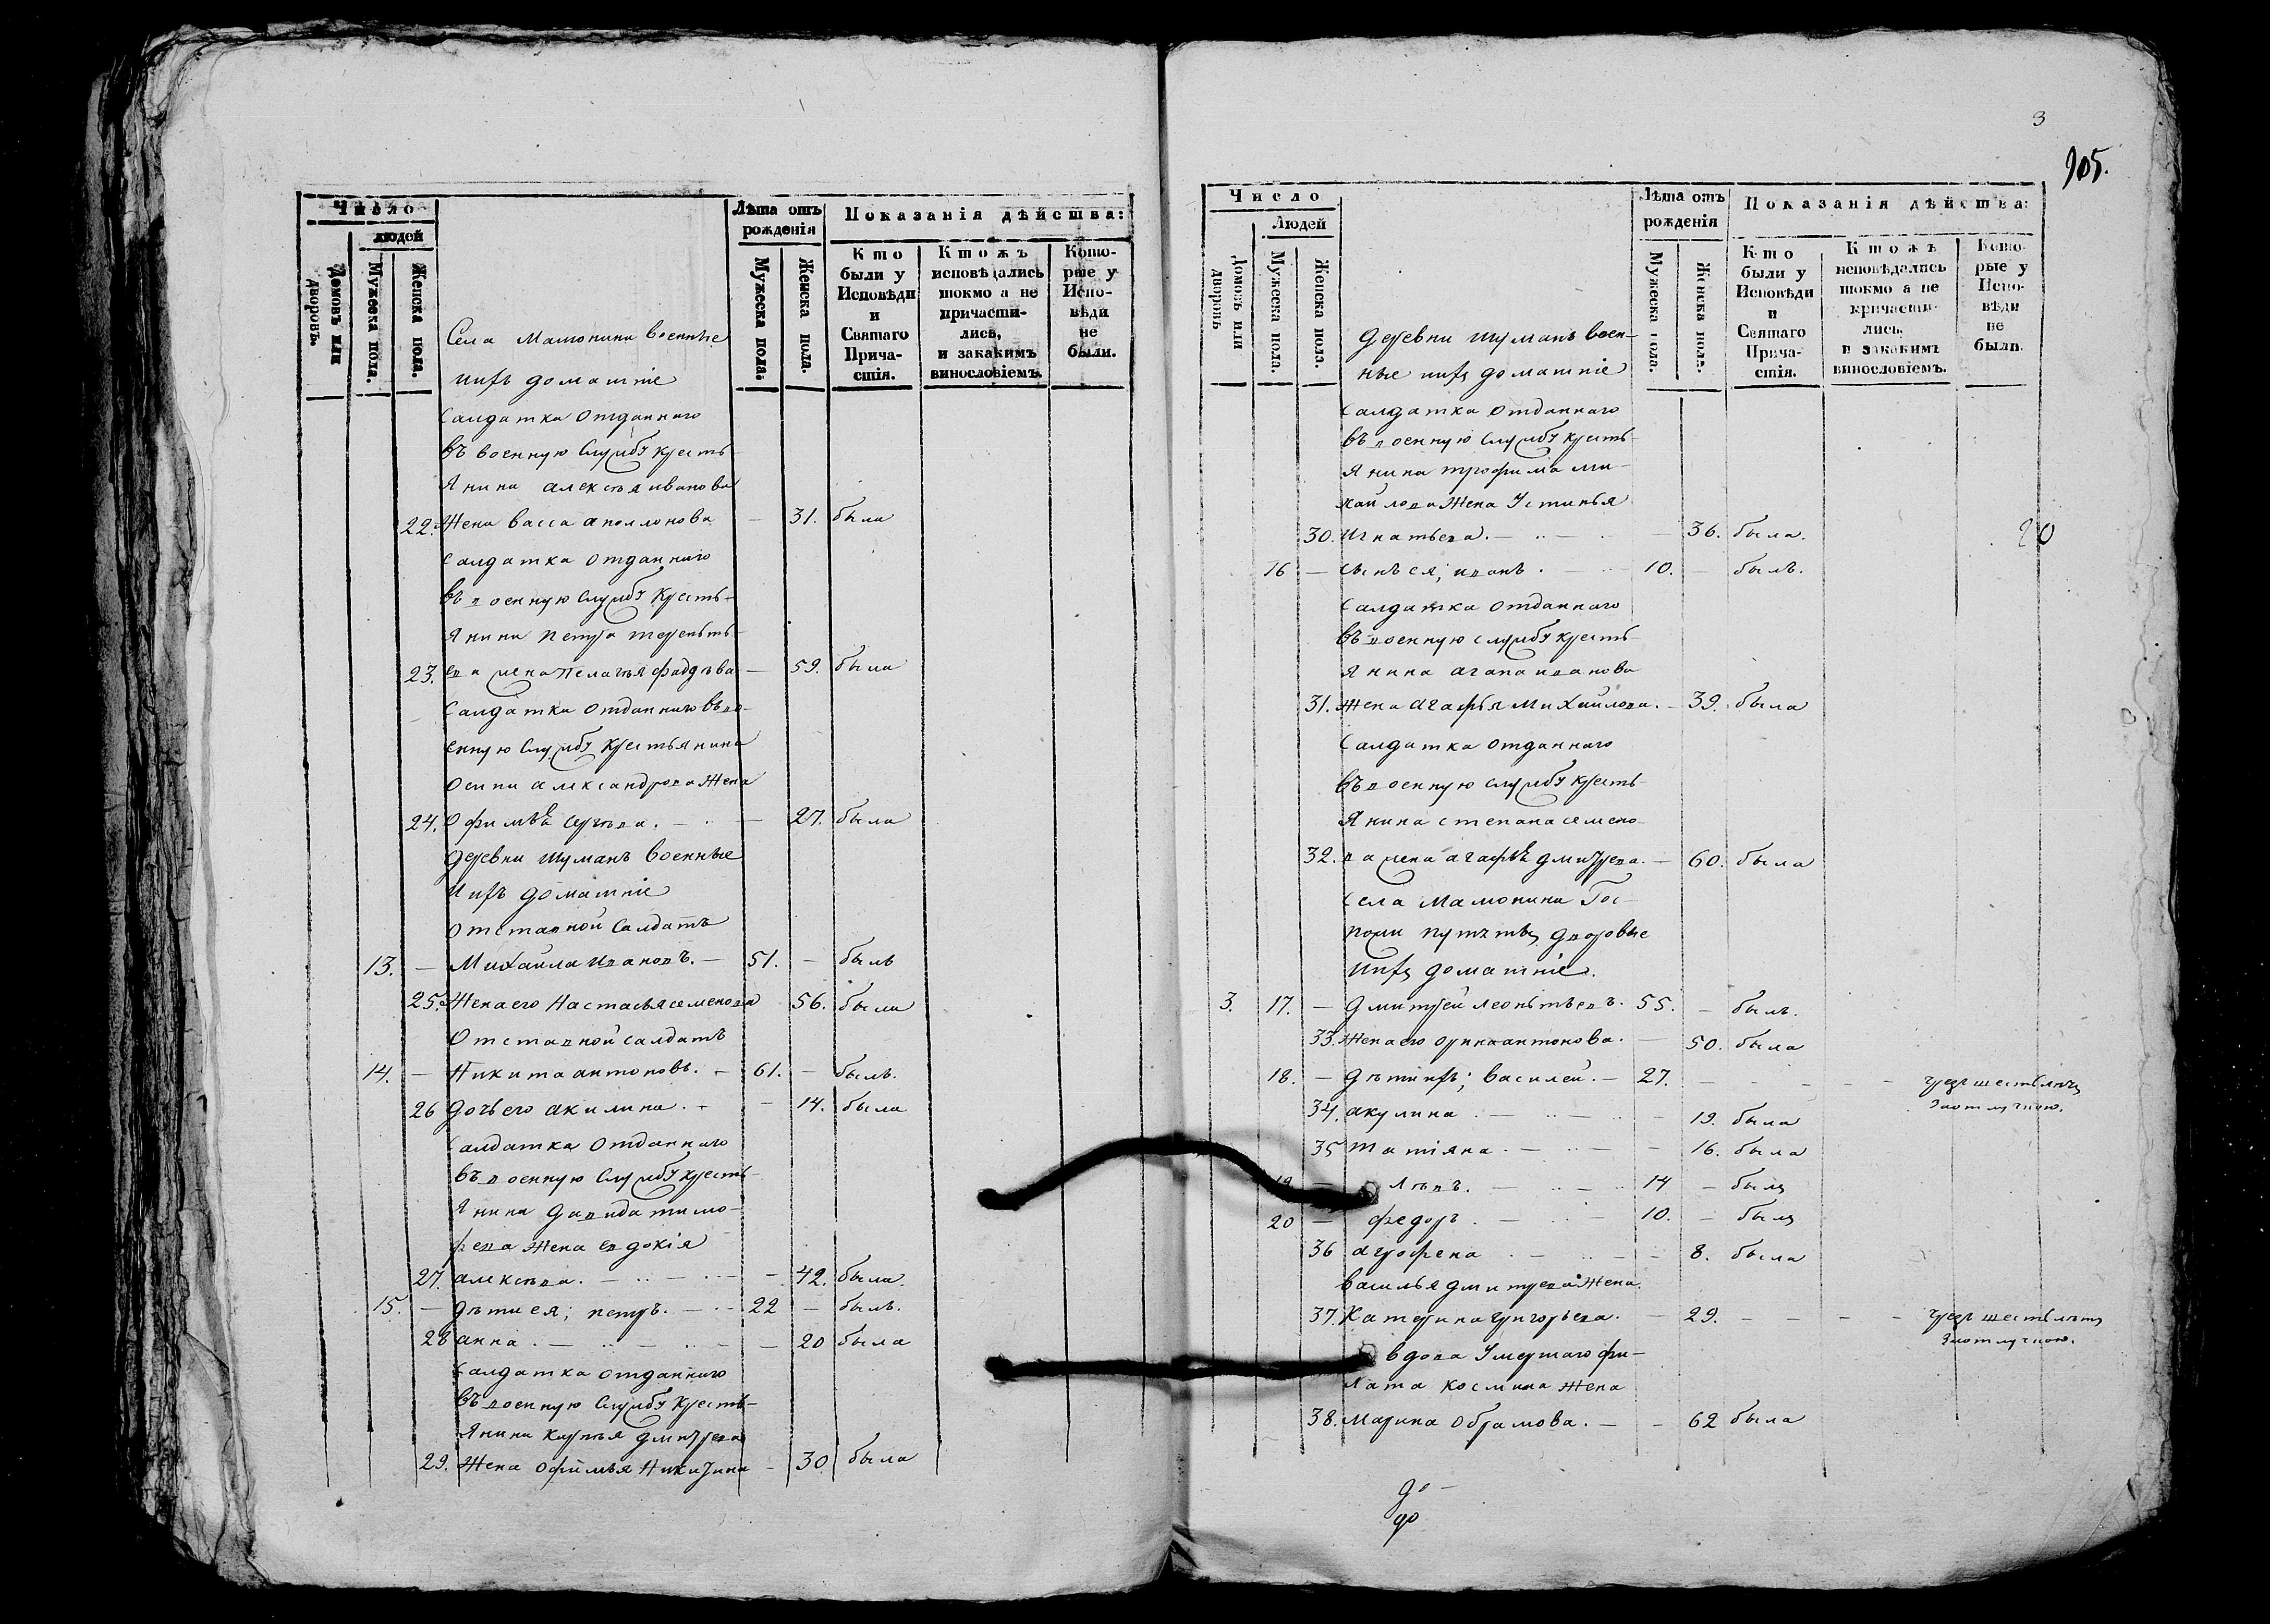 Число
людей
Домовъ или дворовъ.
Мужеска пола.
Женска пола.
Лѣта отъ рожденія
Мужеска пола.
Женска пола.
Показанія дѣйства:
Кто были у Исповѣди и Святаго Причастія.
Ктожъ исповѣдались токмо а не причастились, и закакимъ винословіемъ.
Которые у Исповѣди не были.
Села Мамонина военные
ихъ домашніе
Салдатка отданнаго
въ военную службу кресть-
янина алексѣя иванова
22. Жена васса аполлонова — 31. была
Салдатка отданнаго
въ военную службу кресть-
янина петра теренть-
23. ева жена Пелагѣя фадѣева — 59. была
Салдатка отданнаго въво-
енную службу крестьянина
осипа александрова жена
24. Офимѣа сергѣева. — 27. была
деревни шуманъ военные
ихъ домашніе
отставной салдатъ
13. — Михайла ивановъ. — 51. — былъ
25. Жена его настасья семенова 56. была
Отставной салдатъ
14. — Никита антоновъ. — 61. — былъ.
26 дочь его акилина. — 14. была
Салдатка отданнаго
въ военную службу кресть-
янина давида тимо-
феева жена евдокія
27. алексѣева. — 42. была.
15. — дѣти ея; петръ. — 22 — былъ.
28 анна. — 20 была
Салдатка отданнаго
въ военную службу кресть-
янина карпъя дмитрева
29. Жена офимья Никитина — 30 была
3
905.
Число
Людей
Домовъ или дворовъ
Мужеска пола.
Женска пола.
Лѣта отъ рожденія
Мужеска пола.
Женска пола.
Показанія дѣйства:
Кто были у Исповѣди и Святаго Причастія.
Ктожъ исповѣдались токмо а не причастились, и закакимъ винословіемъ.
Которые у Исповѣди не были.
деревни шуманъ воен-
ные ихъ домашніе
Салдатка отданнаго
въ военную службу кресть-
янина трофима ми-
хайлова жена Устинья
30. игнатьева. — 36. была.
20
16 — сынъ ея; иванъ. — 10. — былъ.
Салдатка отданнаго
въ военную службу кресть-
янина агапа иванова
31. Жена агафья михайлова. — 39. была
Салдатка отданнаго
въ военную службу кресть-
янина степана семено-
32. ва жена агафѣа дмитрева. — 60. была
Села Мамонина Гос-
дворовые
ихъ домашніе.
3. 17. — дмитрей леонтьевъ. 55. — былъ.
33. Жена его орина антонова. — 50. была
18. — дѣти ихъ; василей. — 27. — — — — чрезъ шесть лѣтъ
заотлучкою.
34. акулина. — 19. была
35 татіяна. — 16. была
19 — левъ. — 14 — былъ
20 — федоръ. — 10. — былъ
36 агрофена — 8. была
василья дмитрева жена
37. Катерина григорьева. — 29. — — — — чрезъ шесть лѣтъ
заотлучкою.
вдова Умершаго фи-
лата космина жена
38. Марина обрамова. — 62 была
до —
до